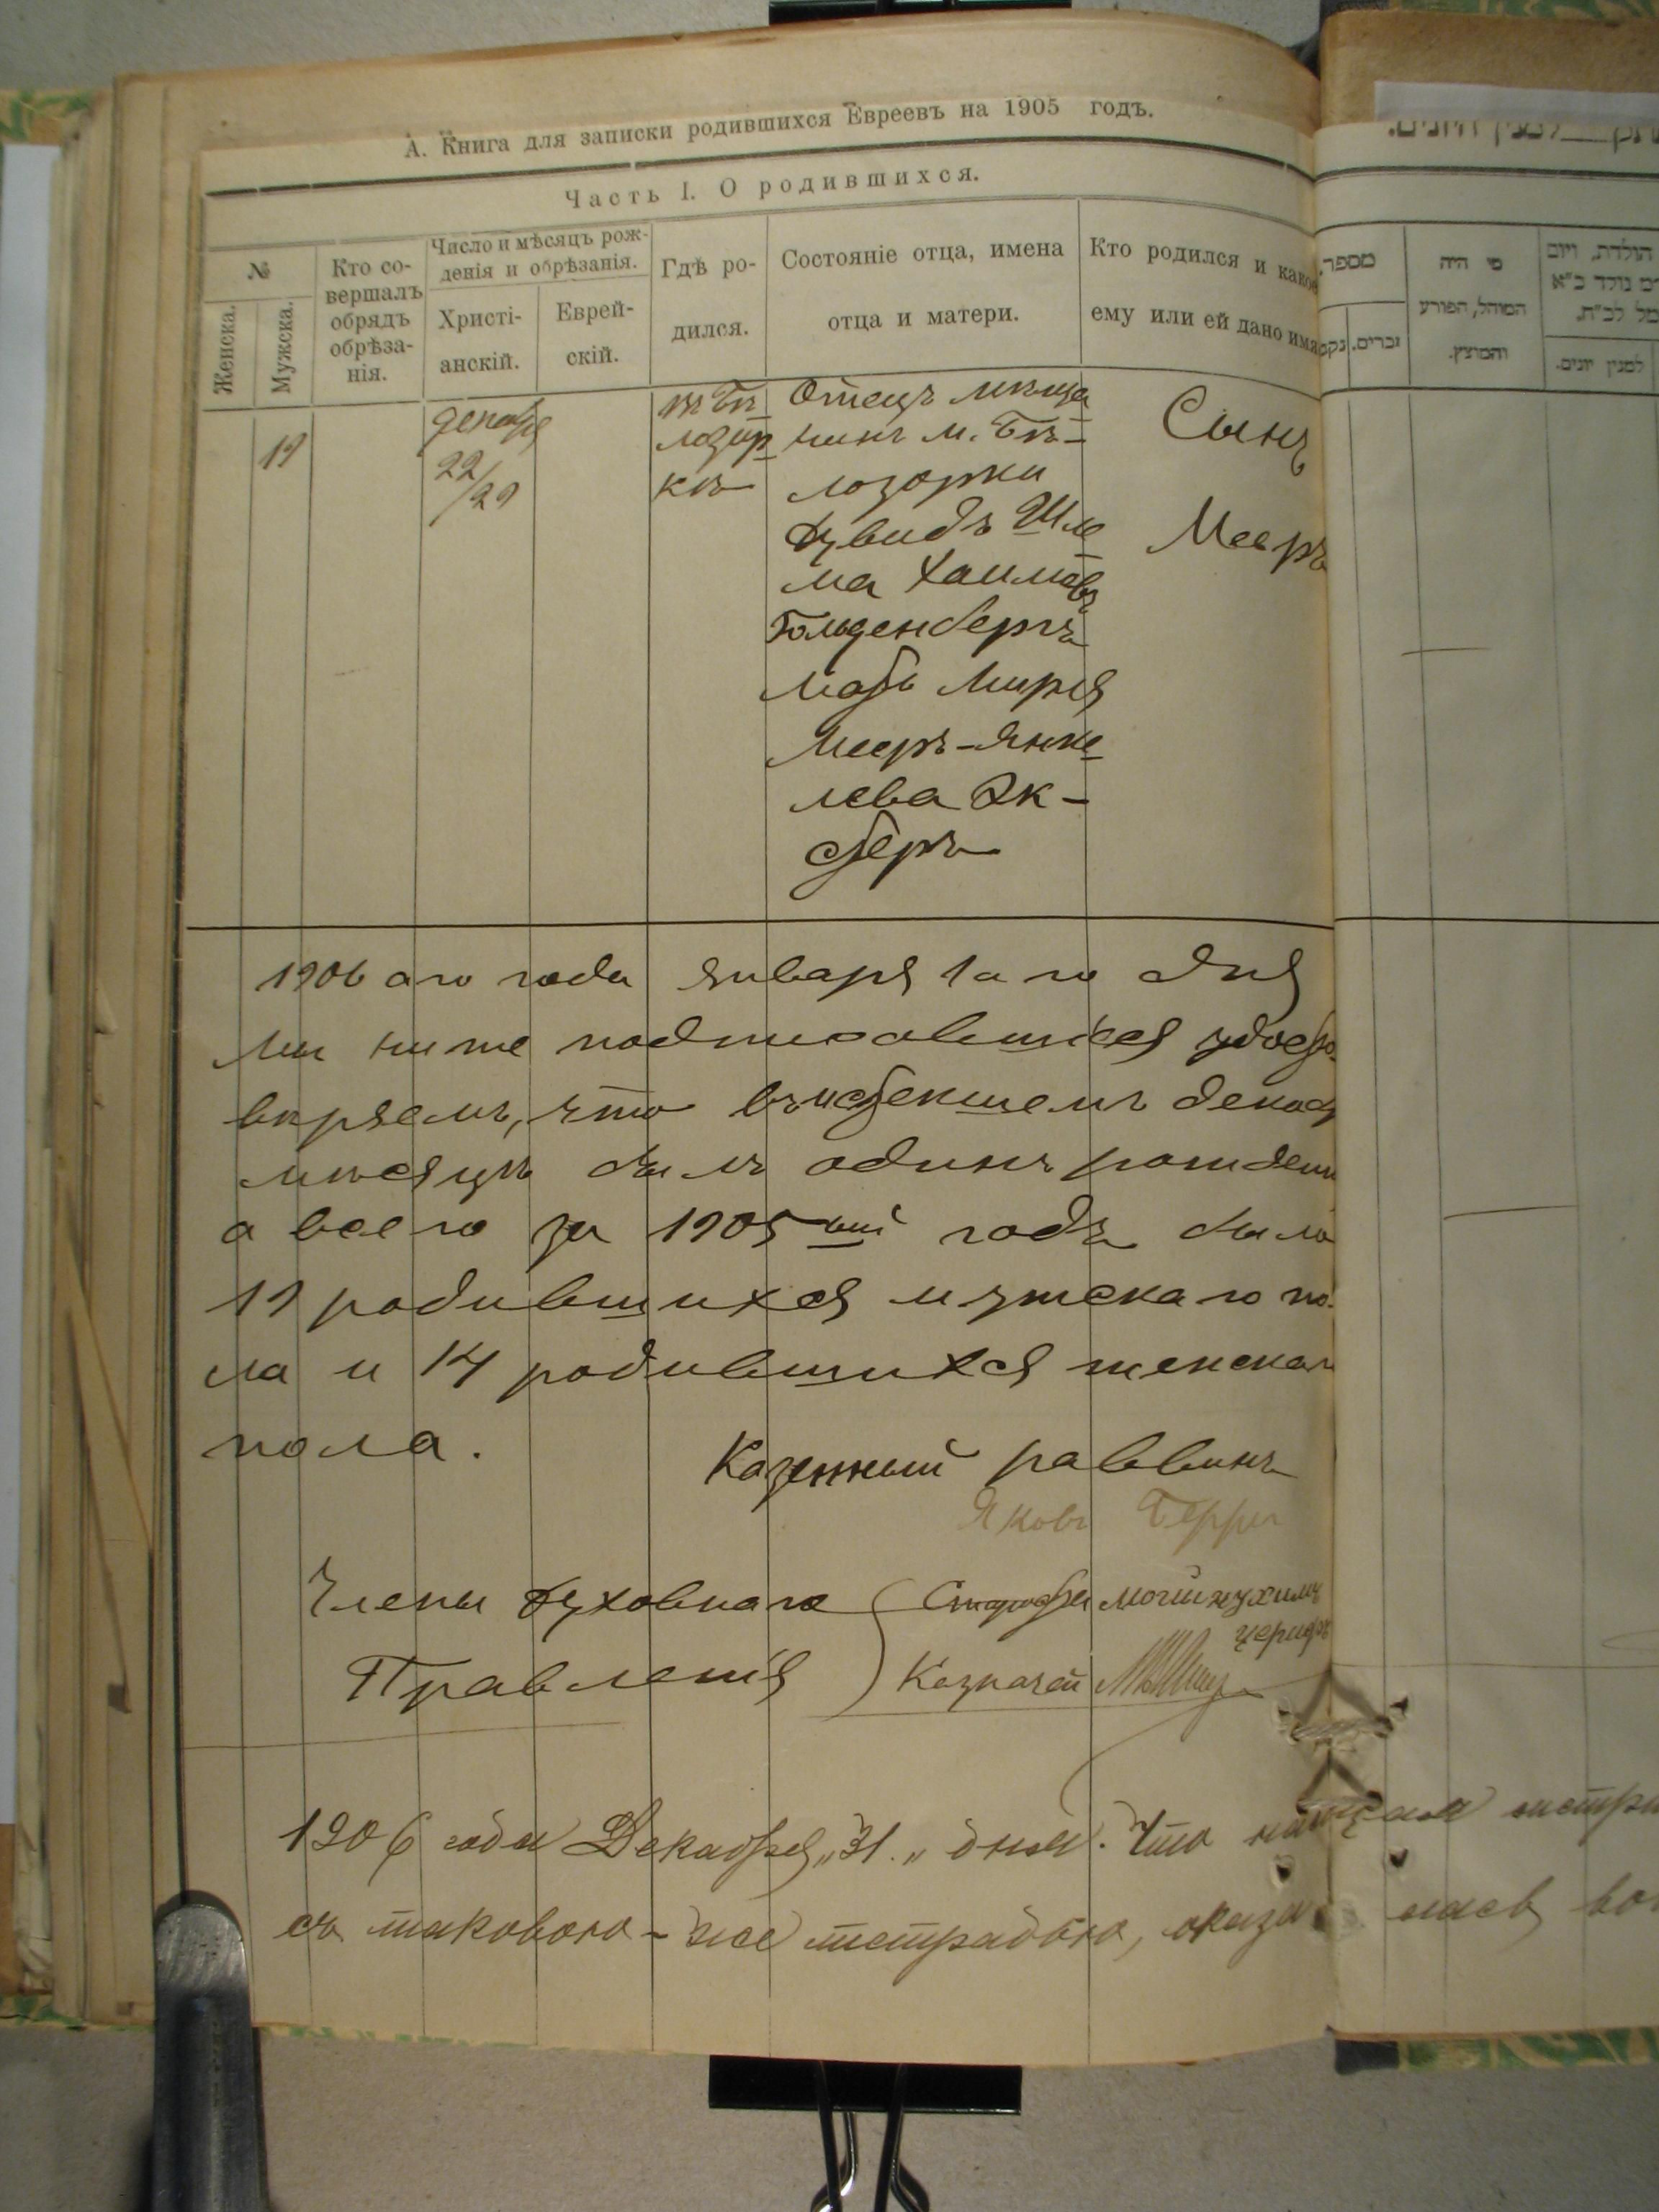 А. Книга для записки родившихся Евреевъ на 1905 годъ.
Часть I. О родившихся.
№
Женска.
Мужска.
Кто со-
вершалъ
обрядъ
обрѣза-
нія.
Число и мѣсяцъ рож-
денія и обрѣзанія.
Христі-
анскій.
Еврей-
скій.
Гдѣ ро-
дился.
Состояніе отца, имена
отца и матери.
Кто родился и какое
ему или ей дано имя
19
декабря
22/29
въ Бѣ
лозор
кѣ
Отецъ мѣща
нинъ м. Бѣ-
лозорки
Шле
ма Хаимовъ
Гольденбергъ
мать Мирля
Мееръ-Янке
лева Эк-
стеръ
Сынъ
Мееръ
1906 аго года января 1 а го дня
мы ниже подписавшіеся удосто-
вѣряемъ, что въ истекшемъ декаб
мѣсяцѣ былъ одинъ рожденн
а всего за 1905 ый годъ было
19 родившихся мужскаго по-
ла и 14 родившихся женскаг
пола.
Казенный раввинъ
Яковъ
Члены Духовнаго
Правленія
Староста
Казначей
1906 года Декабря „31„ дня. Что
съ таковою-же тетрадью, оказалась
מספר.
זכרים.
מי היה
המוהל, הפורע
והמוצץ.
למנין יונים.